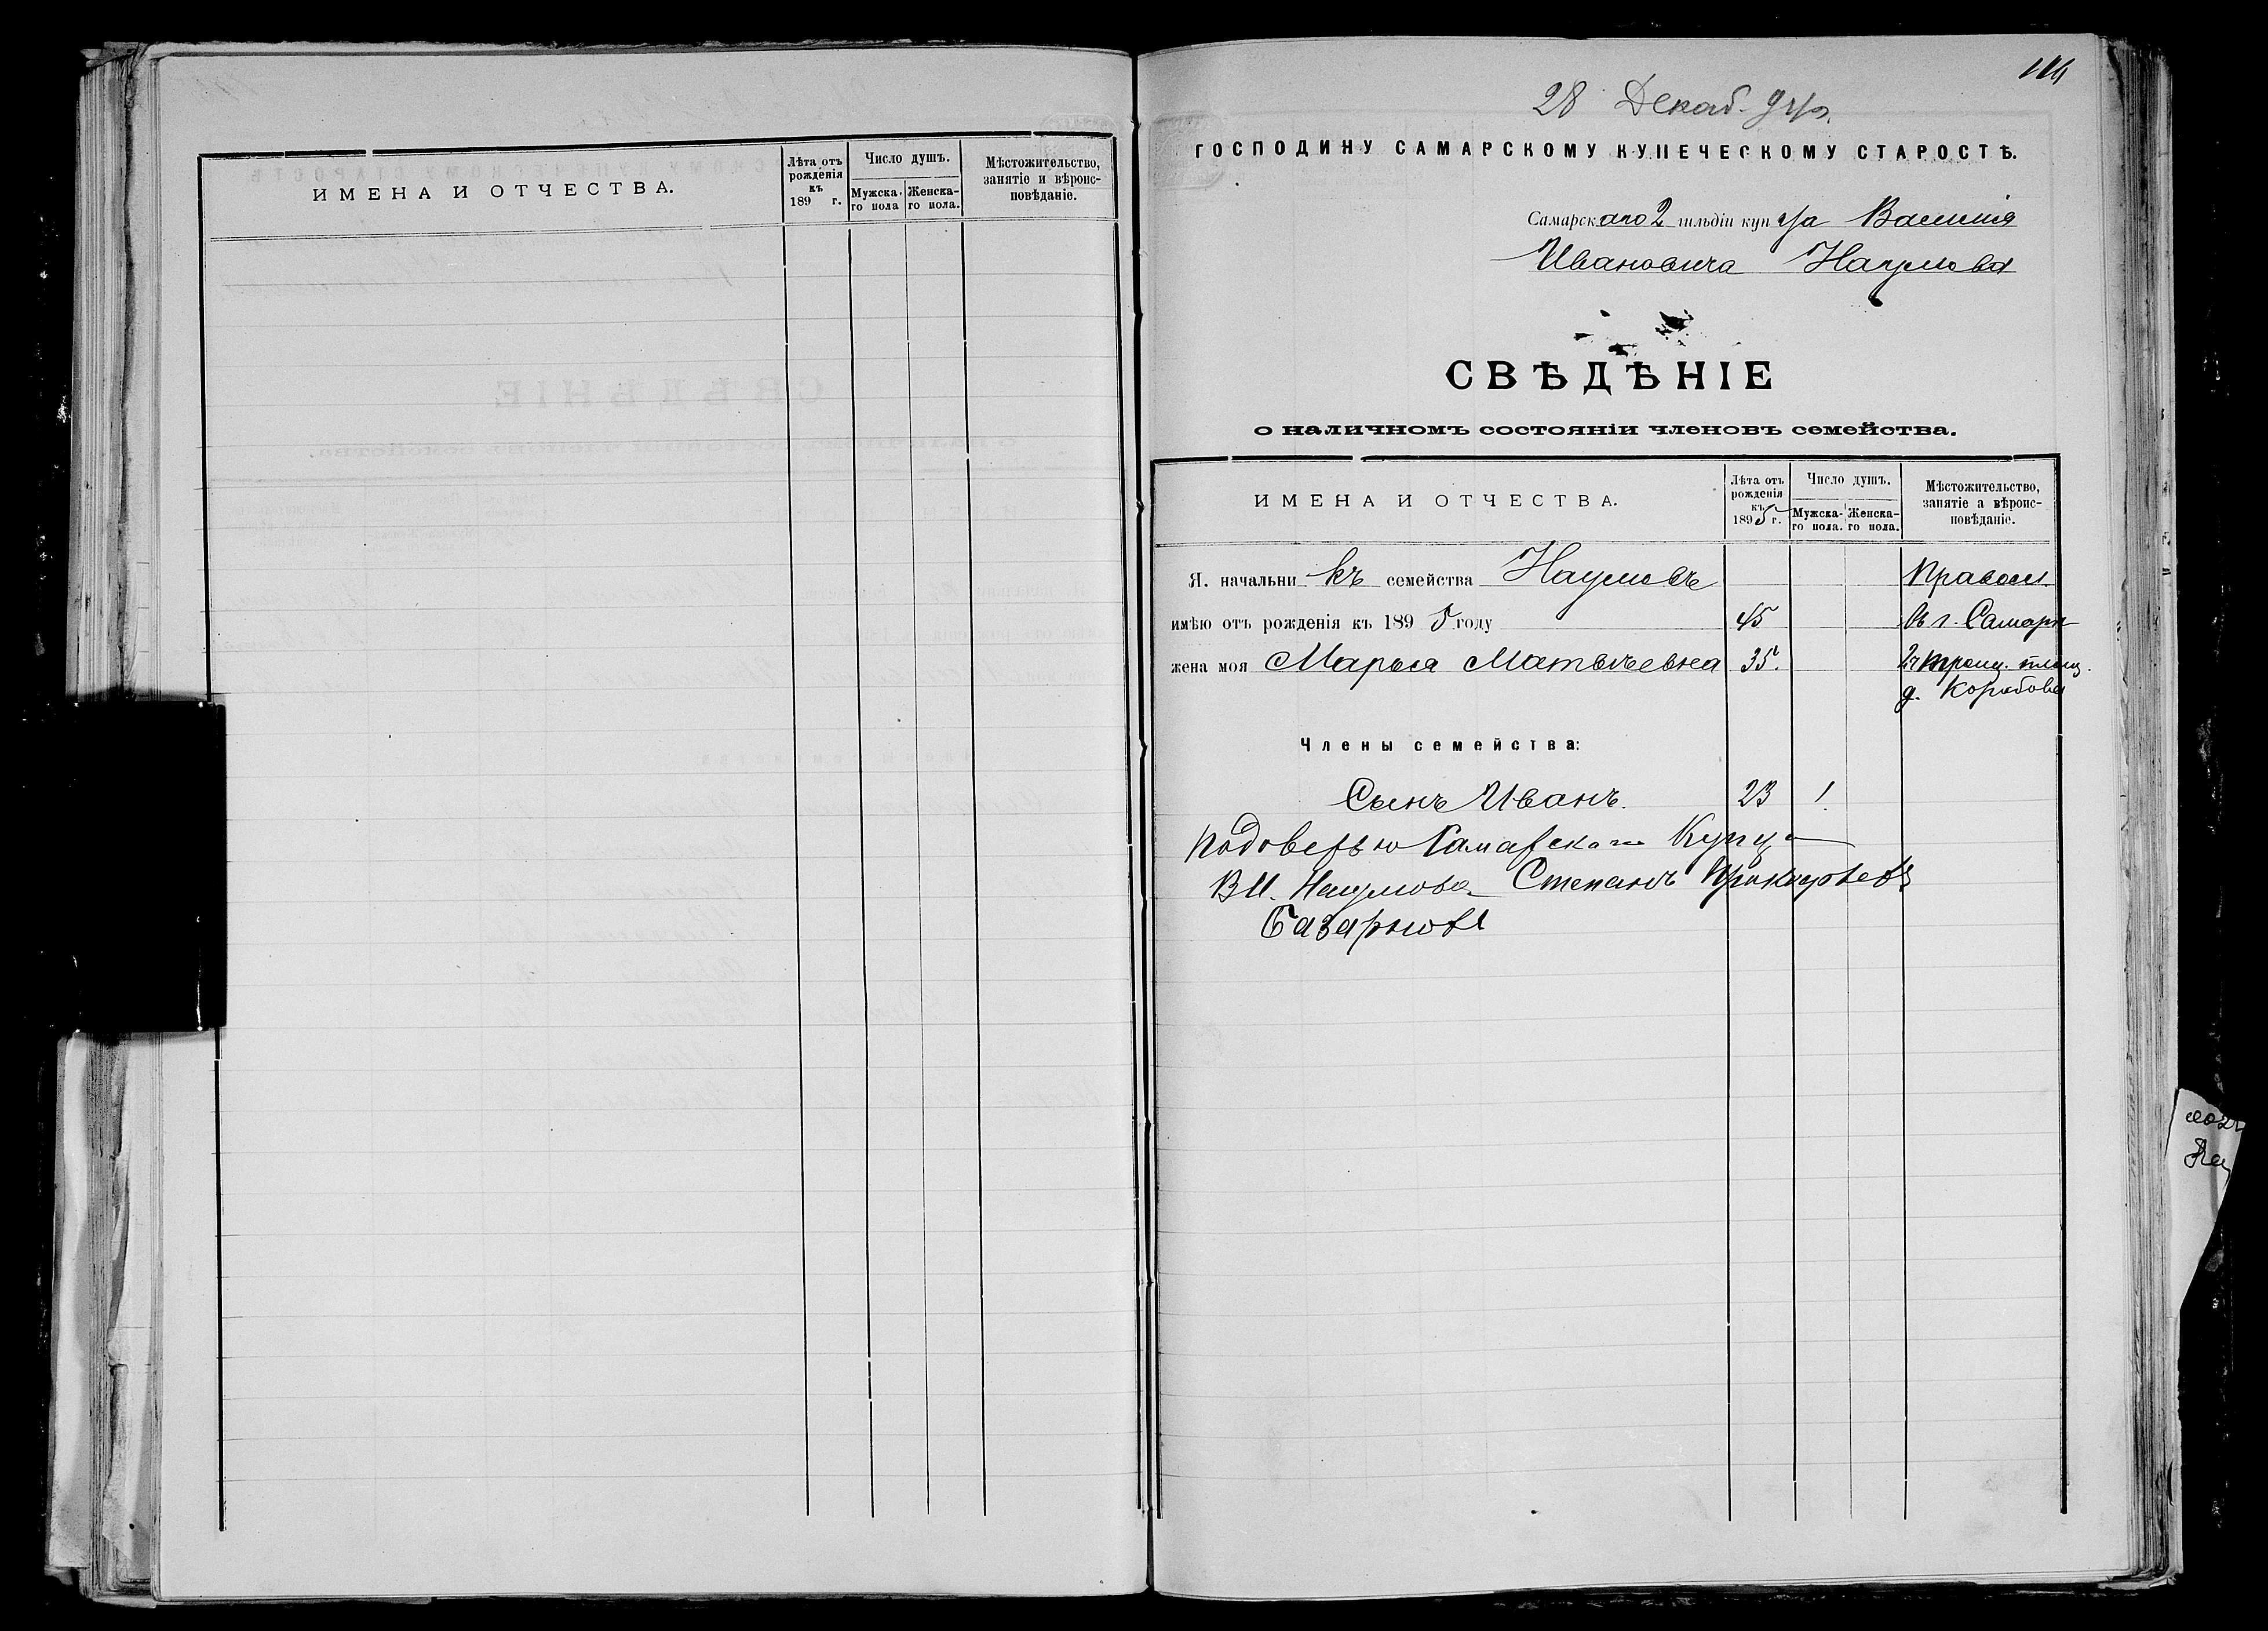 ИМЕНА И ОТЧЕСТВА.
Лѣта отъ рожденія къ 189 г.
Число душъ.
Мужска-го пола
Женска-го пола.
Мѣстожительство, занятіе и вѣроисповѣданіе.
28 Декаб.
ГОСПОДИНУ САМАРСКОМУ КУПЕЧЕСКОМУ СТАРОСТѢ.
Самарскаго 2 гильдіи купца Василія
Ивановича Наумова
СВѢДѢНІЕ
о наличномъ состояніи членовъ семейства.
ИМЕНА И ОТЧЕСТВА.
Лѣта отъ рожденія къ 1895 г.
Число душъ.
Мужска-го пола.
Женска-го пола.
Мѣстожительство, занятіе а вѣроисповѣданіе.
Я. начальникъ семейства Наумовъ Правосл.
имѣю отъ рожденія къ 1895 году 45 въ г. Самарѣ
жена моя Марья Матвѣевна 35. Троиц. площ.
д.
Члены семейства:
Сынъ Иванъ. 23 1.
Подоверью Самарскаго Купца
В И. Наумова Степанъ Прокофьевъ